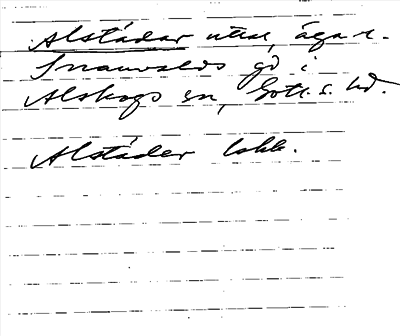 Alstädar utal, äga r.
Snauvalds gd i
Alskogs sn, Gotl. s. hd.
Alstäder lokk.